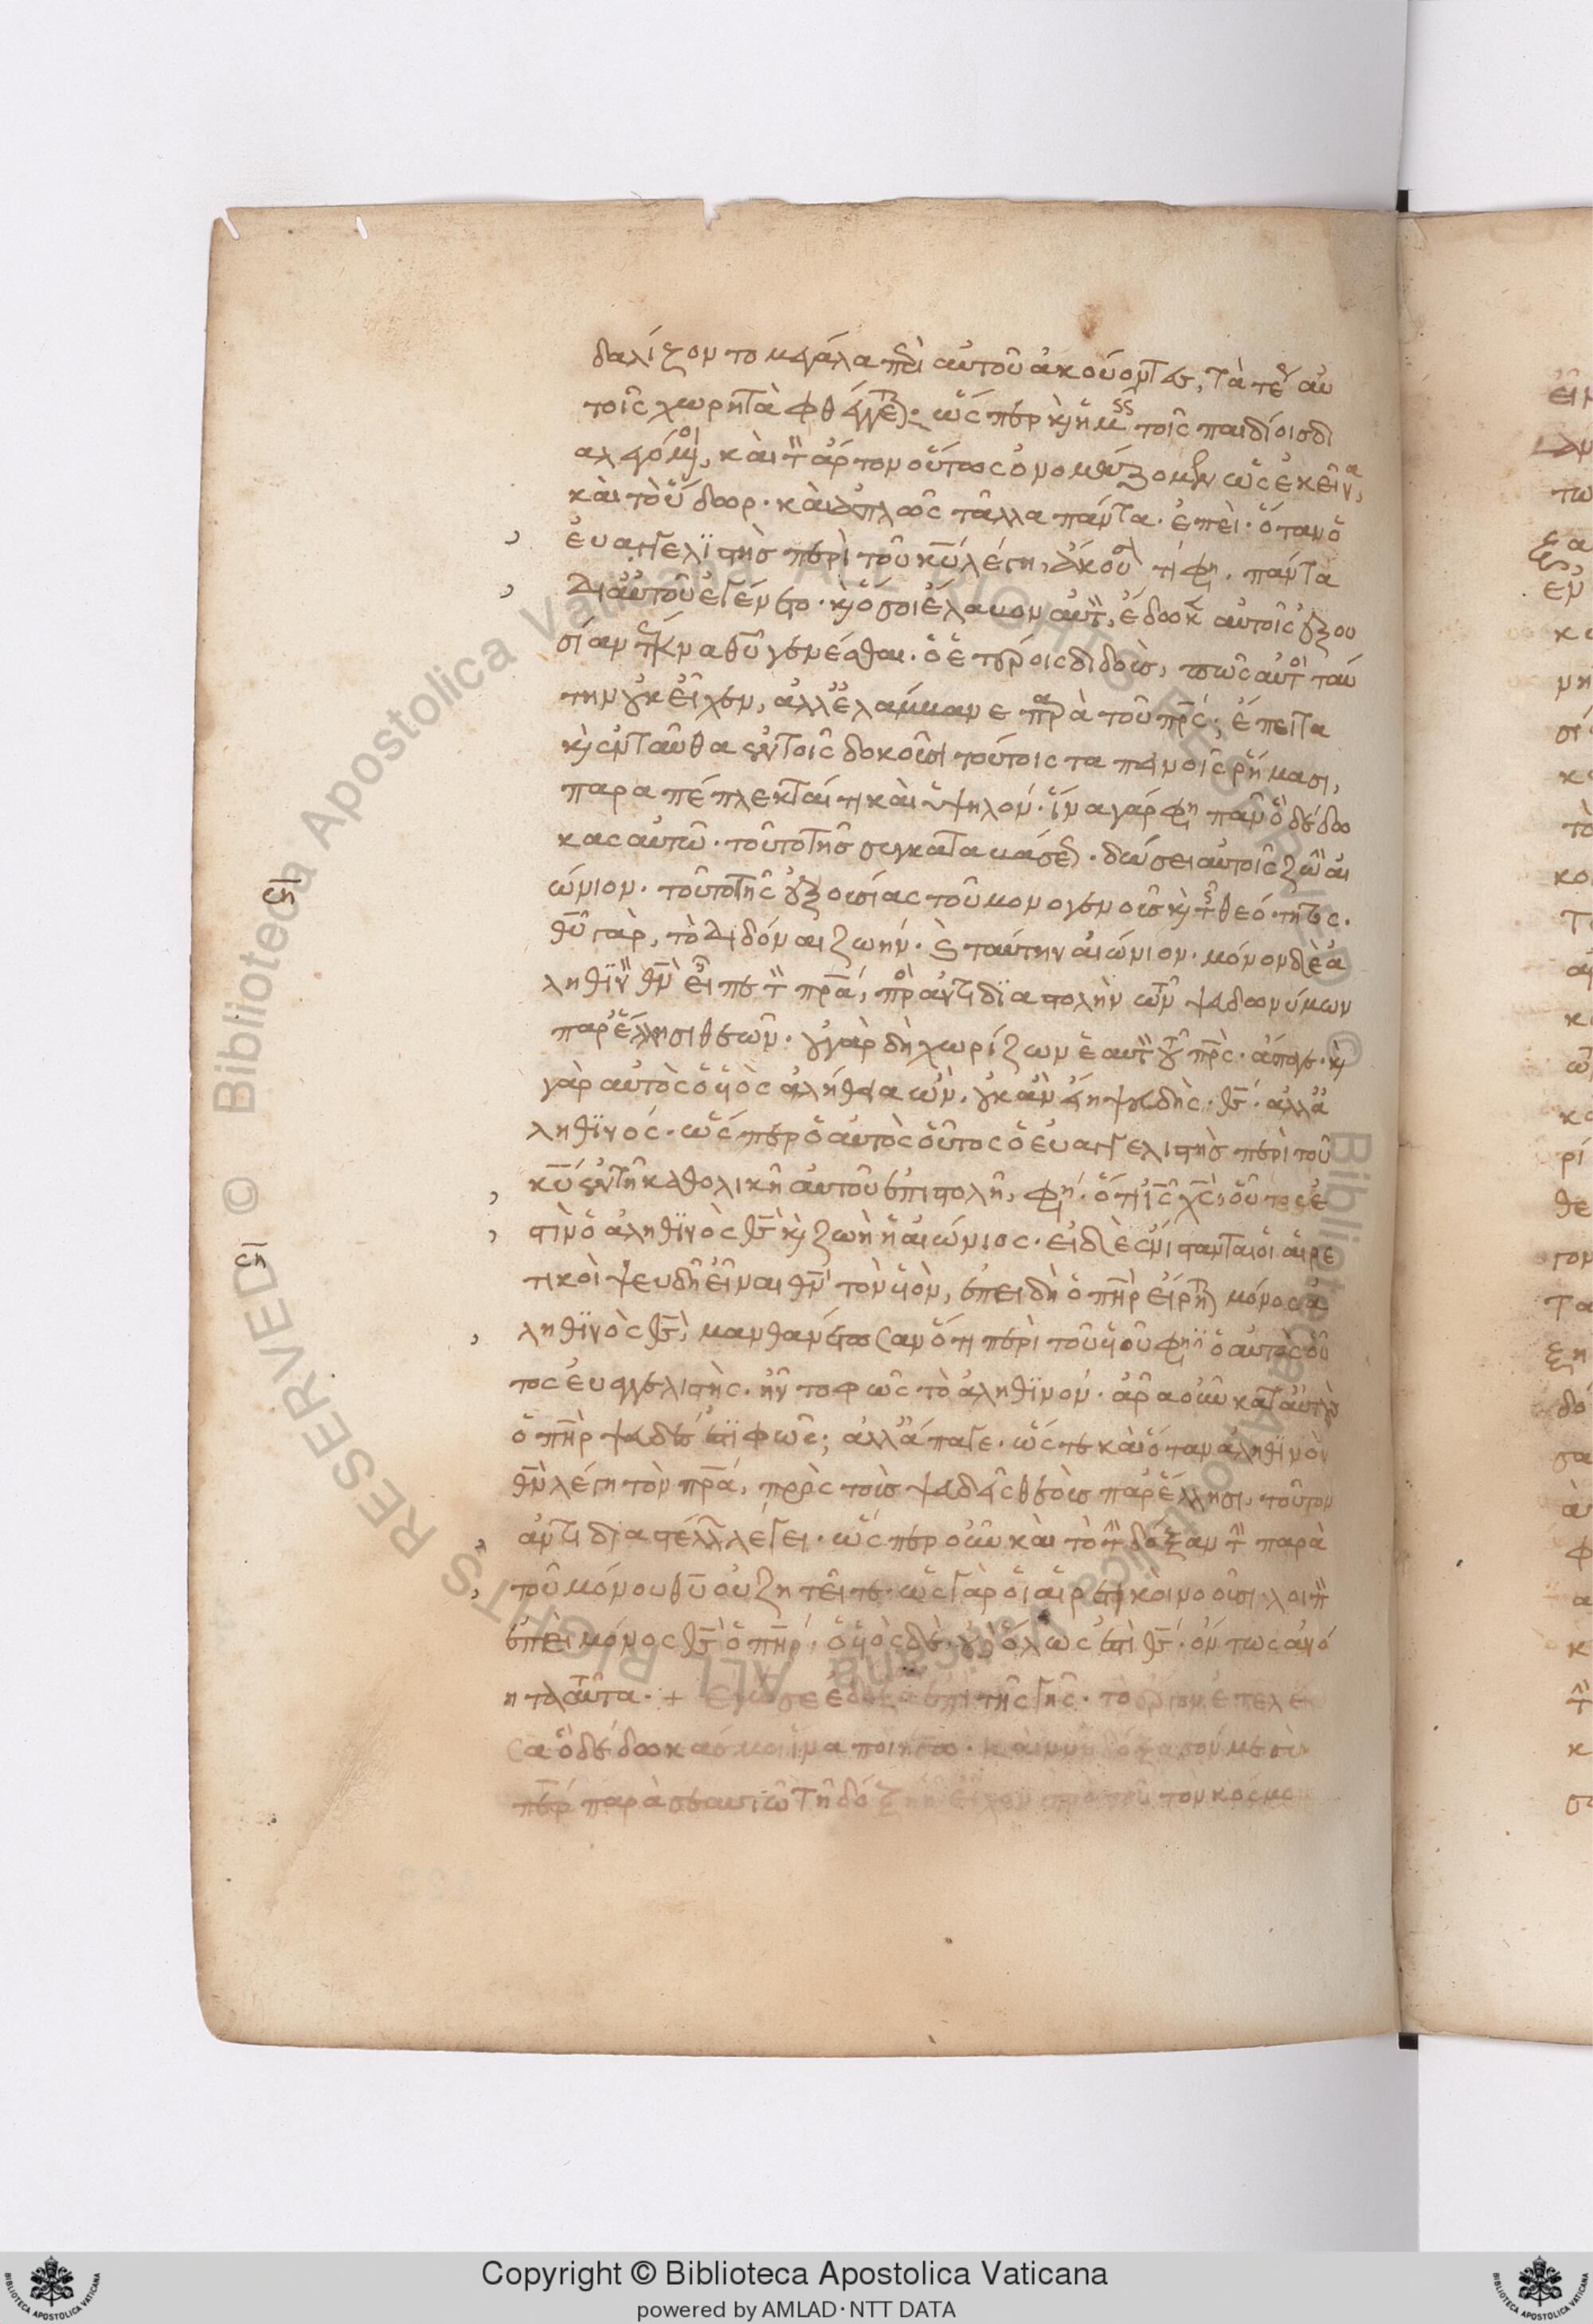 δαλίζοντο μεγάλα περὶ αὐτοῦ ἀκούοντες, τὰ τέως αὐ
τοῖς χωρητὰ φθέγγεται· ὥσπερ καὶ ἡμεῖς τοῖς παιδίοις δι
αλεγόμενοι, καὶ τὸν ἄρτον οὕτως ὀνομάζομεν ὡς ἐκεῖνα,
καὶ τὸ ὕδωρ· καὶ ἁπλῶς τἄλλα πάντα· ἐπεὶ ὅταν ὁ
εὐαγγελιστὴς περὶ τοῦ κυ λέγη, ἄκουσον τί φησι· πάντα
δι αὐτοῦ ἐγένετο· καὶ ὅσοι ἔλαβον αὐτὸν, ἔδωκεν αὐτοῖς ἐξου
σίαν τέκνα θυ γενέσθαι· ὁ ἑτέροις διδοὺς, πῶς αὐτὸς ταύ
την οὐκ εἶχεν, ἀλλ ἐλάμβανε παρὰ τοῦ πρς; ἔπειτα
καὶ ἐνταῦθα ἐν τοῖς δοκοῦσι τούτοις ταπεινοῖς ῥήμασι,
παραπέπλεκταί τι καὶ ὑψηλόν· ἵνα γάρ φησι πᾶν ὃ δέδω
κας αὐτῷ· τοῦτο τῆς συγκαταβάσεως· δώσει αὐτοῖς ζωὴν αἰ
ώνιον· τοῦτο τῆς ἐξουσίας τοῦ μονογενοῦς καὶ τῆς θεότητος·
θυ γὰρ, τὸ διδόναι ζωήν· καὶ ταύτην αἰώνιον· μόνον δὲ ἀ
ληθινὸν θν εἶπε τὸν πρα, πρὸς ἀντιδιαστολὴν τῶν ψευδωνύμων
παρ ἕλλησι θεῶν· οὐ γὰρ δὴ χωρίζων ἑαυτὸν τοῦ πρς· ἄπαγε· καὶ
γὰρ αὐτὸς ὁ υἱὸς ἀλήθεια ὢν, οὐκ ἂν εἴη ψευδὴς θς· ἀλλ ἀ
ληθινός· ὥσπερ ὁ αὐτὸς οὗτος ὁ εὐαγγελιστὴς περὶ τοῦ
κυ ἐν τῇ καθολικῇ αὐτοῦ ἐπιστολῇ, φησίν· ὅτι ις χς, οὗτός ἐ
στιν ὁ ἀληθινὸς θς καὶ ζωὴ ἡ αἰώνιος· εἰ δὲ ἐνίστανται οἱ αἱρε
τικοὶ ψευδῆ εἶναι θν τὸν υἱὸν, ἐπειδὴ ὁ πηρ εἴρηται μόνος ἀ
ληθινὸς θς, μανθανέτωσαν ὅτι περὶ τοῦ υἱοῦ φησιν ὁ αὐτὸς οὗ
τος εὐαγγελιστὴς· ἦν τὸ φῶς τὸ ἀληθινόν· ἆρα οὖν κατ αὐτοὺς
ὁ πηρ ψευδές ἐστι φῶς; ἀλλ ἄπαγε· ὥστε καὶ ὅταν ἀληθινὸν
θν λέγη τὸν πρα, πρὸς τοὺς ψευδεῖς θεοὺς παρ ἕλλησι, τοῦτον
ἀντιδιαστέλλων λέγει· ὥσπερ οὖν καὶ τὸ τὴν δόξαν τὴν παρὰ
τοῦ μόνου θυ οὐ ζητεῖτε· ὡς γὰρ οἱ αἱρετικοὶ νοοῦσι λοιπὸν
ἐπεὶ μόνος θς ὁ πηρ, ὁ υἱὸς δὲ οὐδ ὅλως ἐστὶ θς· ὄντως ἀνό
ητα ταῦτα· + ἐγώ σε ἐδόξασα ἐπὶ τῆς γῆς· τὸ ἔργον ἐτελεί
ωσα ὃ δέδωκάς μοι ἵνα ποιήσω· καὶ νῦν δόξασόν με σὺ
περ παρὰ σεαυτῷ τῇ δόξῃ ᾗ εἶχον πρὸ τοῦ τὸν κόσμον
Copyright © Biblioteca Apostolica Vaticana
powered by AMLAD·NTT DATA